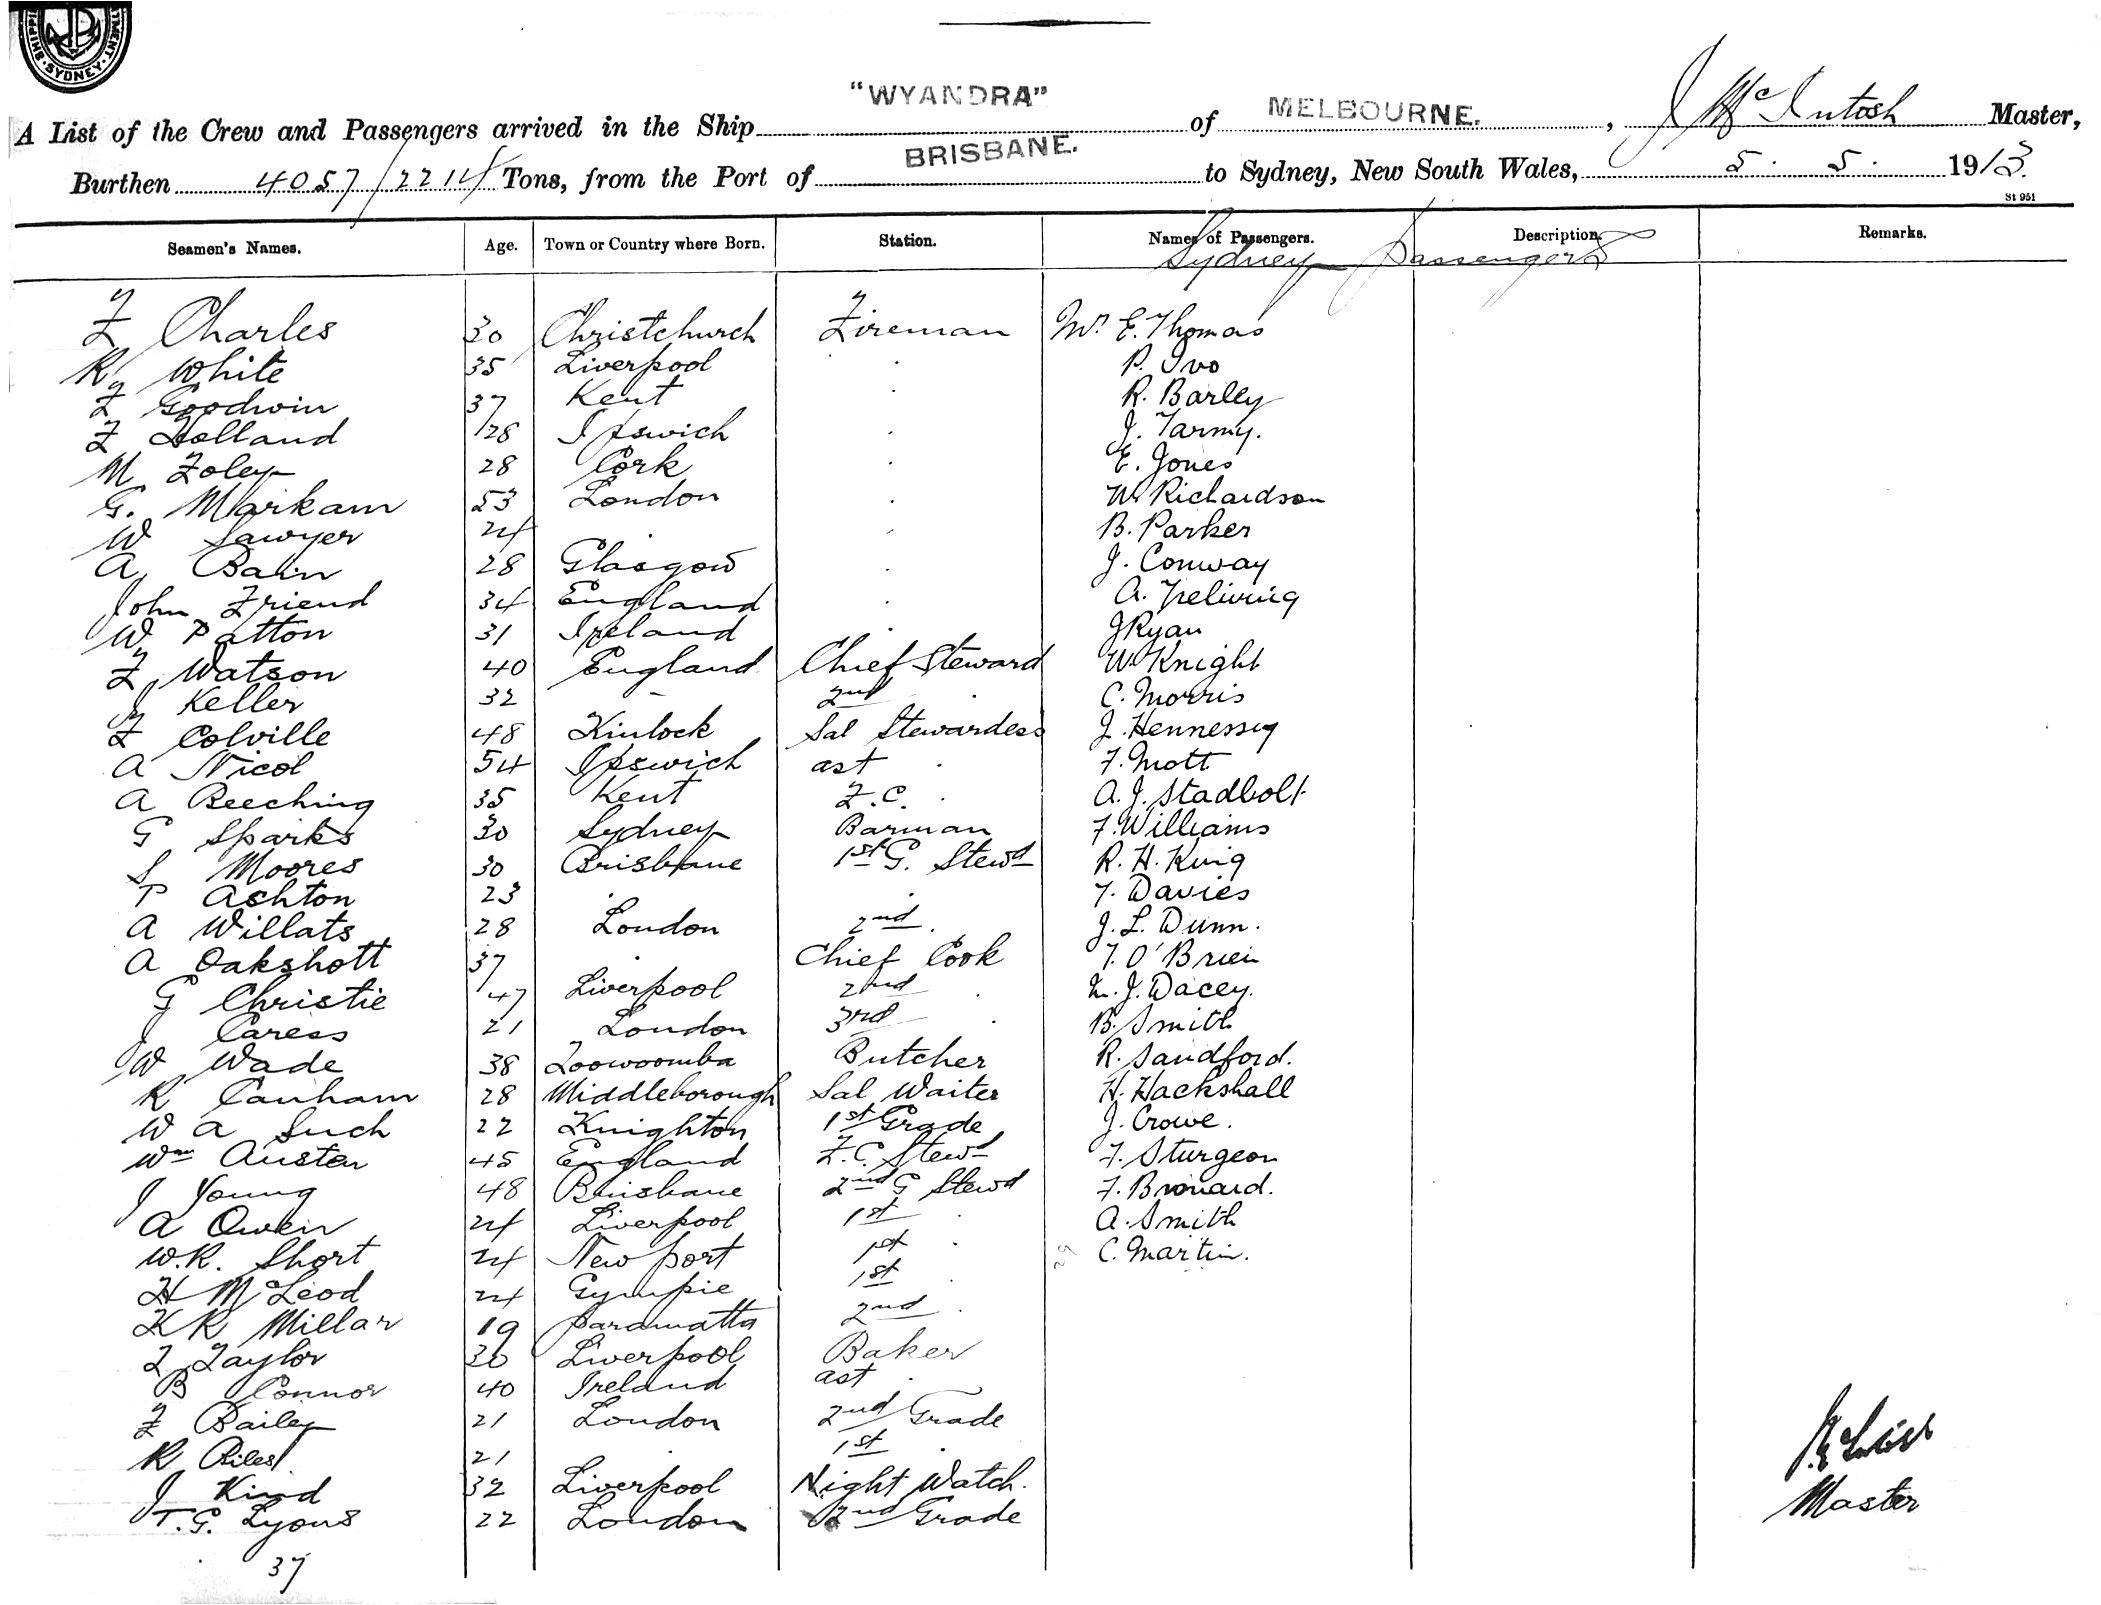 SHIPPI
TMENT.
·SYDNEY·
"WYANDRA"
A List of the Crew and Passengers arrived in the Ship of MELBOURNE. , J McIntosh Master,
Burthen 4057/2214 Tons, from the Port of BRISBANE. to Sydney, New South Wales, 5. 5. 1913.
St 951
Seamen's Names. Age. Town or Country where Born. Station. Names of Passengers. Description. Remarks.
Sydney Passengers
F Charles 30 Christchurch Fireman Mr E. Thomas
R White 35 Liverpool . P. Ivo
F Goodwin 37 Kent . R. Barley
F Holland 28 Ipswich . J. Tarmy.
M Foley 28 Cork . E. Jones
G. Markam 53 London . W. Richardson
W Sawyer 24 . . B. Parker
A Bain 28 Glasgow . J. Conway
John Friend 34 England . A. Treliving
W Patton 31 Ireland . J Ryan
F Watson 40 England Chief Steward W. Knight
J Keller 32 - 2nd . C. Morris
F Colville 48 Kinlock Sal Stewardess J. Hennessy
A Nicol 54 Ipswich ast . F. Mott
A Beeching 35 Kent F.C. . A. J. Stadbolt
G Sparks 30 Sydney Barman F. Williams
S Moores 30 Brisbane 1st G. Stewd R. H. King
P Ashton 23 . . T. Davies
A Willats 28 London 2nd . J. L. Dunn.
A Oakshott 37 . Chief Cook T. O'Brien
G Christie 47 Liverpool 2nd . M. J. Dacey.
J Caress 21 London 3rd . B. Smith
W Wade 38 Toowoomba Butcher R. Sandford.
R Canham 28 Middleborough Sal Waiter H. Hackshall
W A Such 22 Knighton 1st Grade J. Crowe.
Wm Austen 45 England F.C. Stewd F. Sturgeon
J Young 48 Brisbane 2nd G Stewd F.
A Owen 24 Liverpool 1st . A. Smith
W.R. Short 24 Newport 1st . C. Martin.
H McLeod 24 Gympie 1st .
K R Millar 19 Paramatta 2nd .
T Taylor 30 Liverpool Baker
B Connor 40 Ireland ast .
F Bailey 21 London 2nd Grade
R 21 1st
J Kind 32 Liverpool Night Watch.
T. G. Lyons 22 London 2nd Grade
37
Master